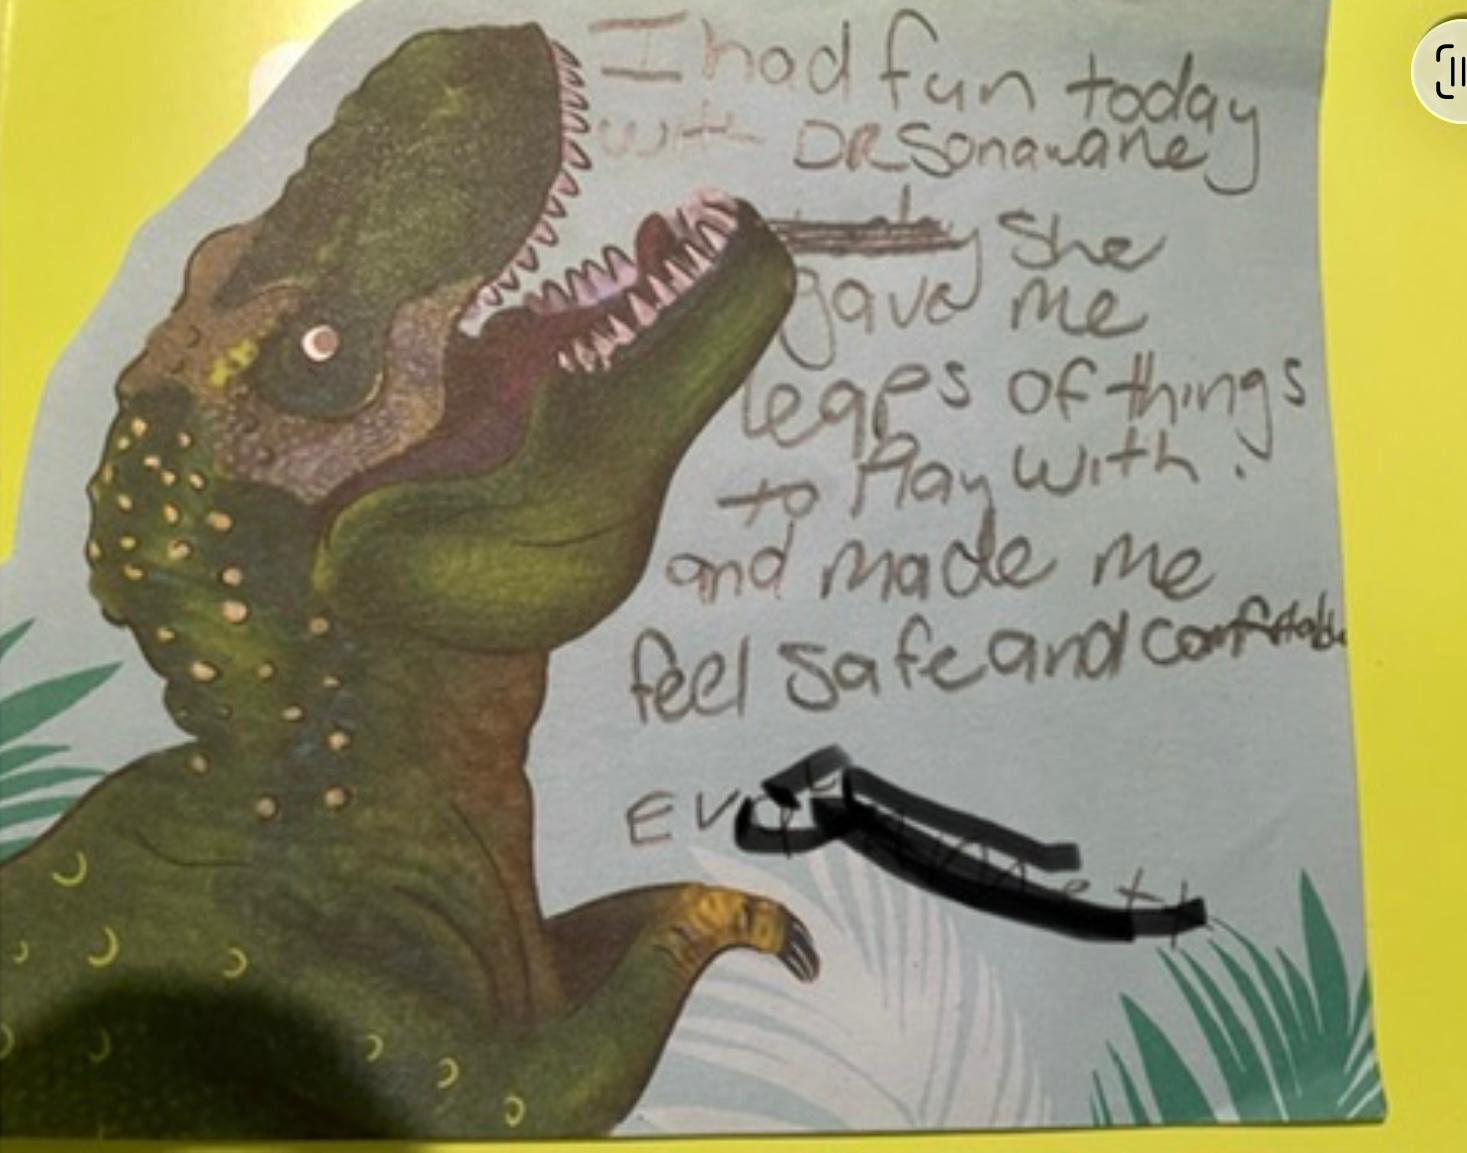 I had fun today
with DR Sonawane
She
gave me
leaps of things
to Play with.
and made me
feel safe and comfortable